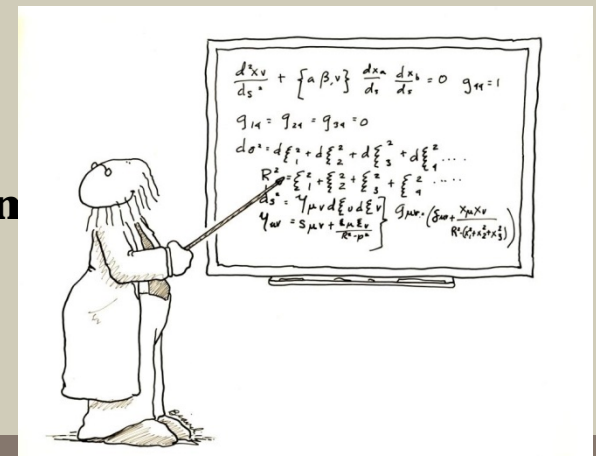 d²xν/ds² + {αβ,ν} dxₐ/ds dx_b/ds = 0 g₄₄=1
g₁₄ = g₂₄ = g₃₄ = 0
dσ² = dξ₁² + dξ₂² + dξ₃² + dξ₄² ....
n
R² = ξ₁² + ξ₂² + ξ₃² + ξ₄² ....
ds² = γμν dξυ dξν
gμν = (δμν + xμxν/R²-(x₁²+x₂²+x₃²))
γμν = Sμν + ξμξν/R²-p²